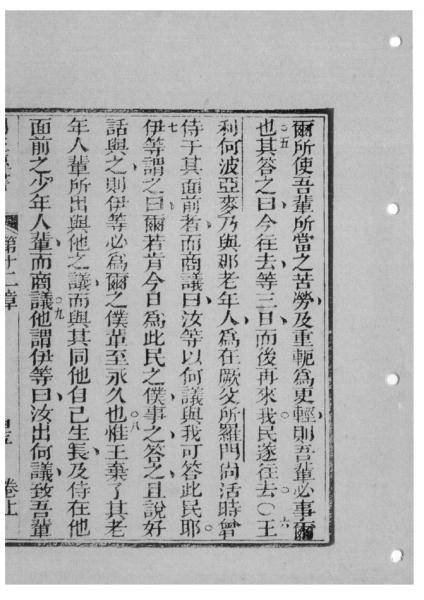 爾所使吾輩所當之苦勞及重軛為更輕則吾輩必事爾
○五
也其答之曰今往去等三日而後再來我民遂往去○王
○六
利何波亞麥乃與那老年人為在厥父所羅門尚活時曾
侍于其面前者而商議曰汝等以何議與我可答此民耶
○七
伊等謂之曰爾若肯今日為此民之僕事之答之且說好
話與之則伊等必為爾之僕輩至永久也惟王棄了其老
○八
年人輩所出與他之議而與其同他自己生長及侍在他
面前之少年人輩而商議他謂伊等曰汝出何議致吾輩
○九
第十二章
卷上